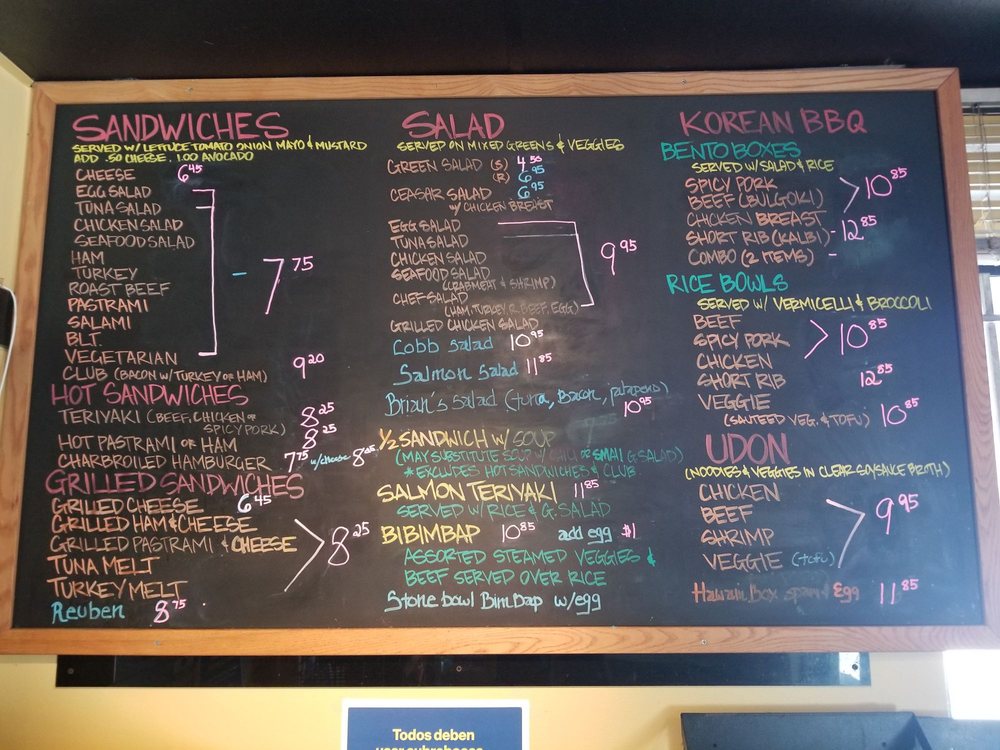 SANDWICHES
SERVED W/ LETTUCE TOMATO ONION MAYO & MUSTARD
ADD .50 CHEESE . 1.00 AVOCADO
CHEESE 6 45
EGG SALAD
TUNA SALAD
CHICKEN SALAD
SEAFOOD SALAD
HAM
TURKEY 7 75
ROAST BEEF
PASTRAMI
SALAMI
BLT.
VEGETARIAN
CLUB (BACON W/ TURKEY OR HAM) 9 20
HOT SANDWICHES
TERIYAKI (BEEF, CHICKEN OR 8 25
SPICY PORK)
HOT PASTRAMI OR HAM 8 25
CHARBROILED HAMBURGER 7 75 w/cheese 8 25
GRILLED SANDWICHES
GRILLED CHEESE 6 45
GRILLED HAM & CHEESE
GRILLED PASTRAMI & CHEESE 8 25
TUNA MELT
TURKEY MELT
Reuben 8 75
SALAD
SERVED ON MIXED GREENS & VEGGIES
GREEN SALAD (S) 4 50
(R) 6 95
CEASAR SALAD 6 95
W/ CHICKEN BREAST
EGG SALAD
TUNA SALAD
CHICKEN SALAD 9 95
SEAFOOD SALAD
(CRABMEAT & SHRIMP)
CHEF SALAD
(HAM, TURKEY, R. BEEF, EGG)
GRILLED CHICKEN SALAD
Cobb Salad 10 95
Salmon Salad 11 85
Brian's Salad (tuna, Bacon, jalapeno)
10 95
1/2 SANDWICH W/ SOUP
(MAY SUBSTITUTE SOUP W/ CHILI OR SMALL G. SALAD)
* EXCLUDES HOT SANDWICHES & CLUB
SALMON TERIYAKI 11 85
SERVED W/ RICE & G. SALAD
BIBIMBAP 10 85 add egg $1
ASSORTED STEAMED VEGGIES &
BEEF SERVED OVER RICE
Stone bowl BimBap w/egg
KOREAN BBQ
BENTO BOXES
SERVED W/ SALAD & RICE
SPICY PORK 10 85
BEEF (BULGOKI)
CHICKEN BREAST
SHORT RIB (KALBI) - 12 85
COMBO (2 ITEMS) -
RICE BOWLS
SERVED W/ VERMICELLI & BROCCOLI
BEEF
SPICY PORK 10 85
CHICKEN
SHORT RIB 12 85
VEGGIE
(SAUTEED VEG. & TOFU) 10 85
UDON
(NOODLES & VEGGIES IN CLEAR SOY SAUCE BROTH)
CHICKEN
BEEF 9 95
SHRIMP
VEGGIE (tofu)
Hawaiin Box spam & Egg 11 85
Todos deben